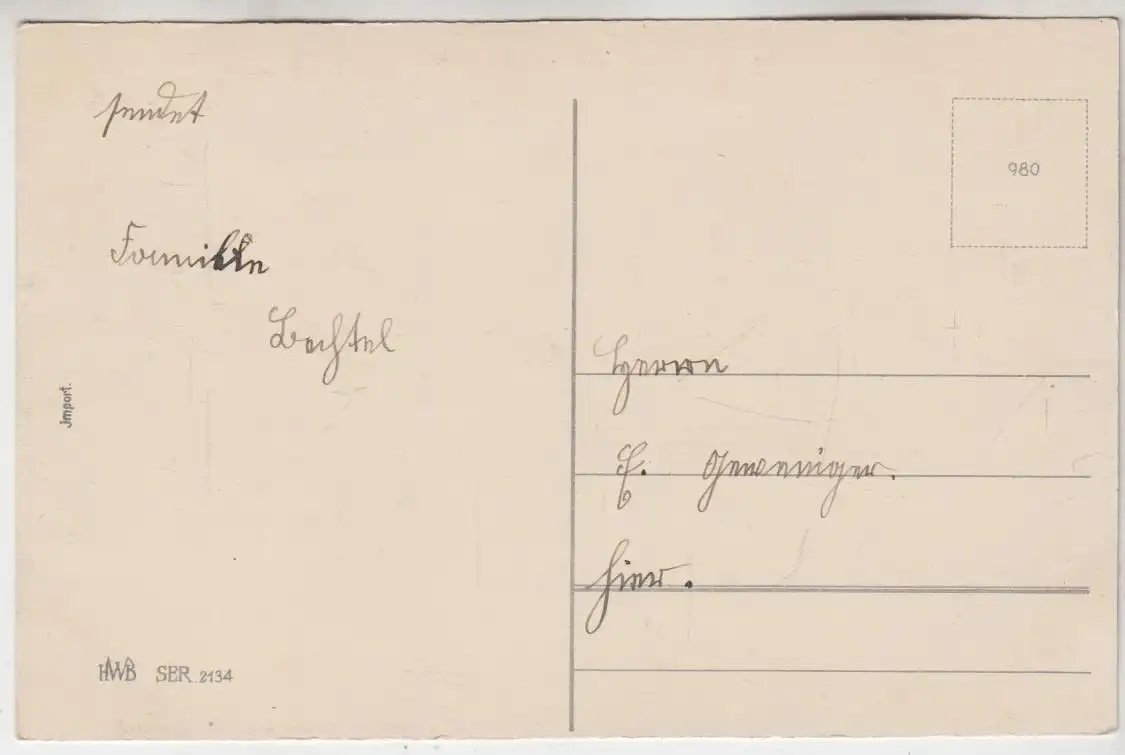 sendet
Familie
Bechtel
Jmport.
HWB SER. 2134
980
Herrn
Geweniger.
hier.